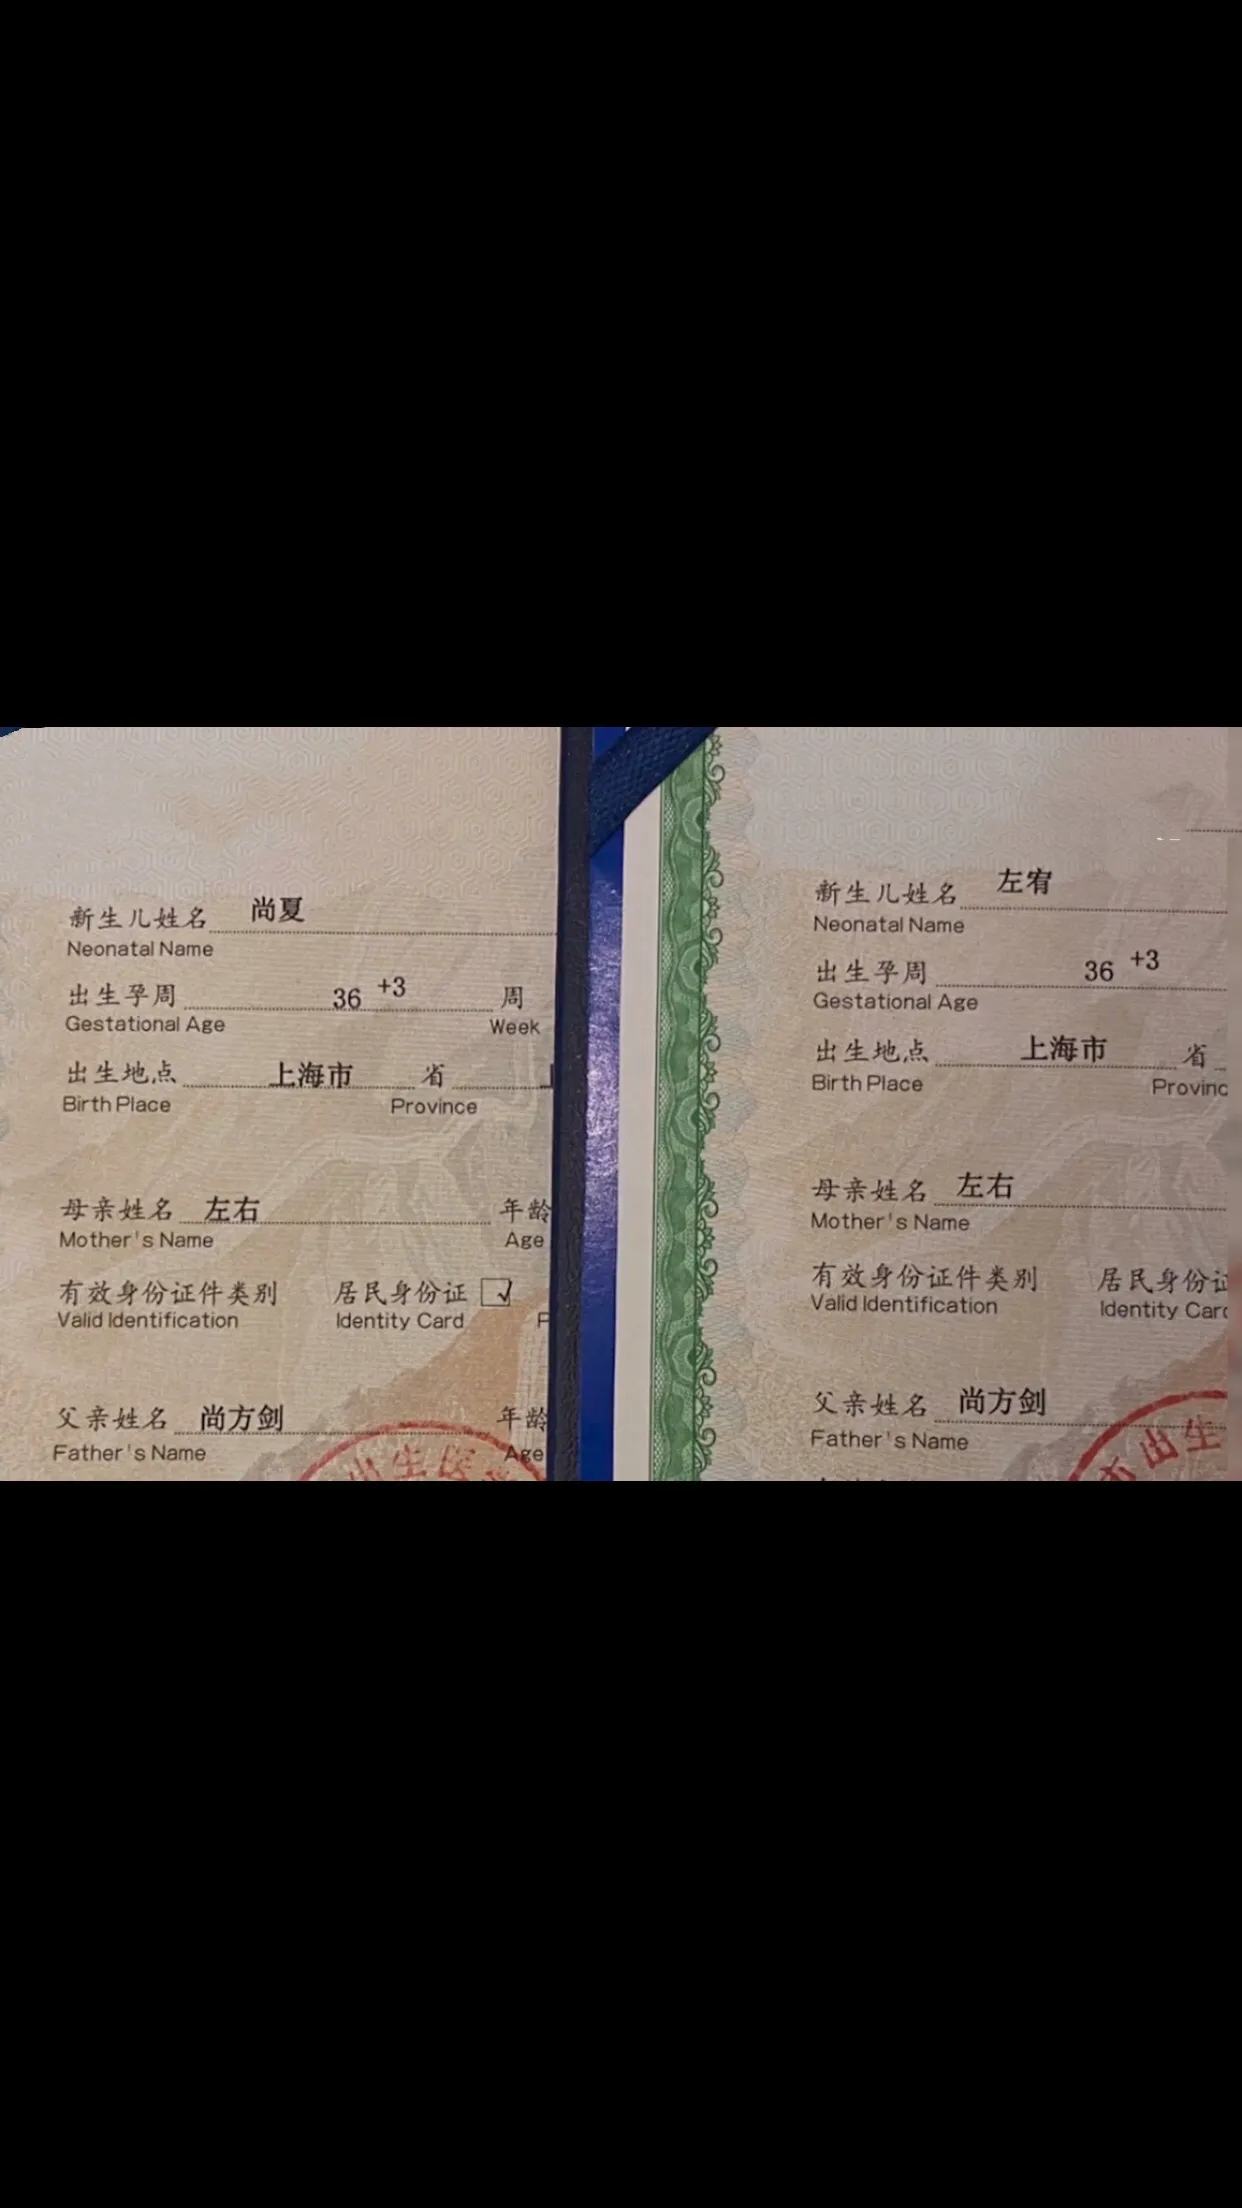 新生儿姓名 尚夏
Neonatal Name
出生孕周 36 +3 周
Gestational Age Week
出生地点 上海市 省
Birth Place Province
母亲姓名 左右 年龄
Mother's Name Age
有效身份证件类别 居民身份证 √
Valid Identification Identity Card
父亲姓名 尚方剑 年龄
Father's Name Age
出生医
新生儿姓名 左宥
Neonatal Name
出生孕周 36 +3
Gestational Age
出生地点 上海市 省
Birth Place Provinc
母亲姓名 左右
Mother's Name
有效身份证件类别 居民身份证
Valid Identification Identity Card
父亲姓名 尚方剑
Father's Name
出生